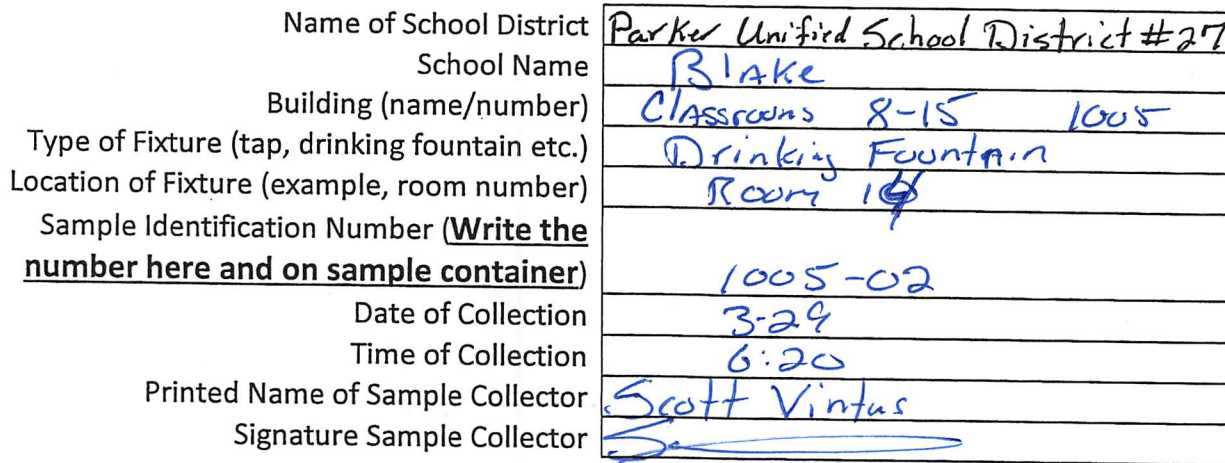 Name of School District Parker Unified School District #27
School Name Blake
Building (name/number) Classrooms 8-15 1005
Type of Fixture (tap, drinking fountain etc.) Drinking Fountain
Location of Fixture (example, room number) Room
Sample Identification Number (Write the
number here and on sample container) 1005-02
Date of Collection 3-29
Time of Collection 6:20
Printed Name of Sample Collector Scott Vintus
Signature Sample Collector